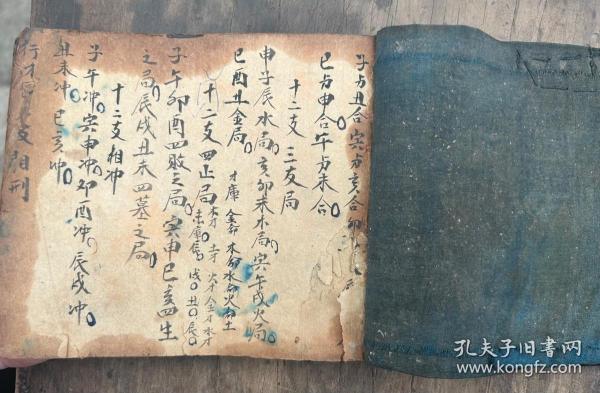 子与丑合 寅与亥合 卯
巳与申合 午与未合
十二支 三友局
申子辰水局 亥卯未木局 寅午戌火局
巳酉丑金局
才庫 金命 木命 水命 火命 土
十二支 四正局
木才 土才 火才 金才 水才
未庫 辰 戌 丑 辰
子午卯酉四敗之局 寅申巳亥四生
之局 辰戌丑未四墓之局
十二支相冲
子午冲 寅申冲 卯酉冲 辰戌冲
丑未冲 巳亥冲
支相刑
孔夫子旧书网
www.kongfz.com